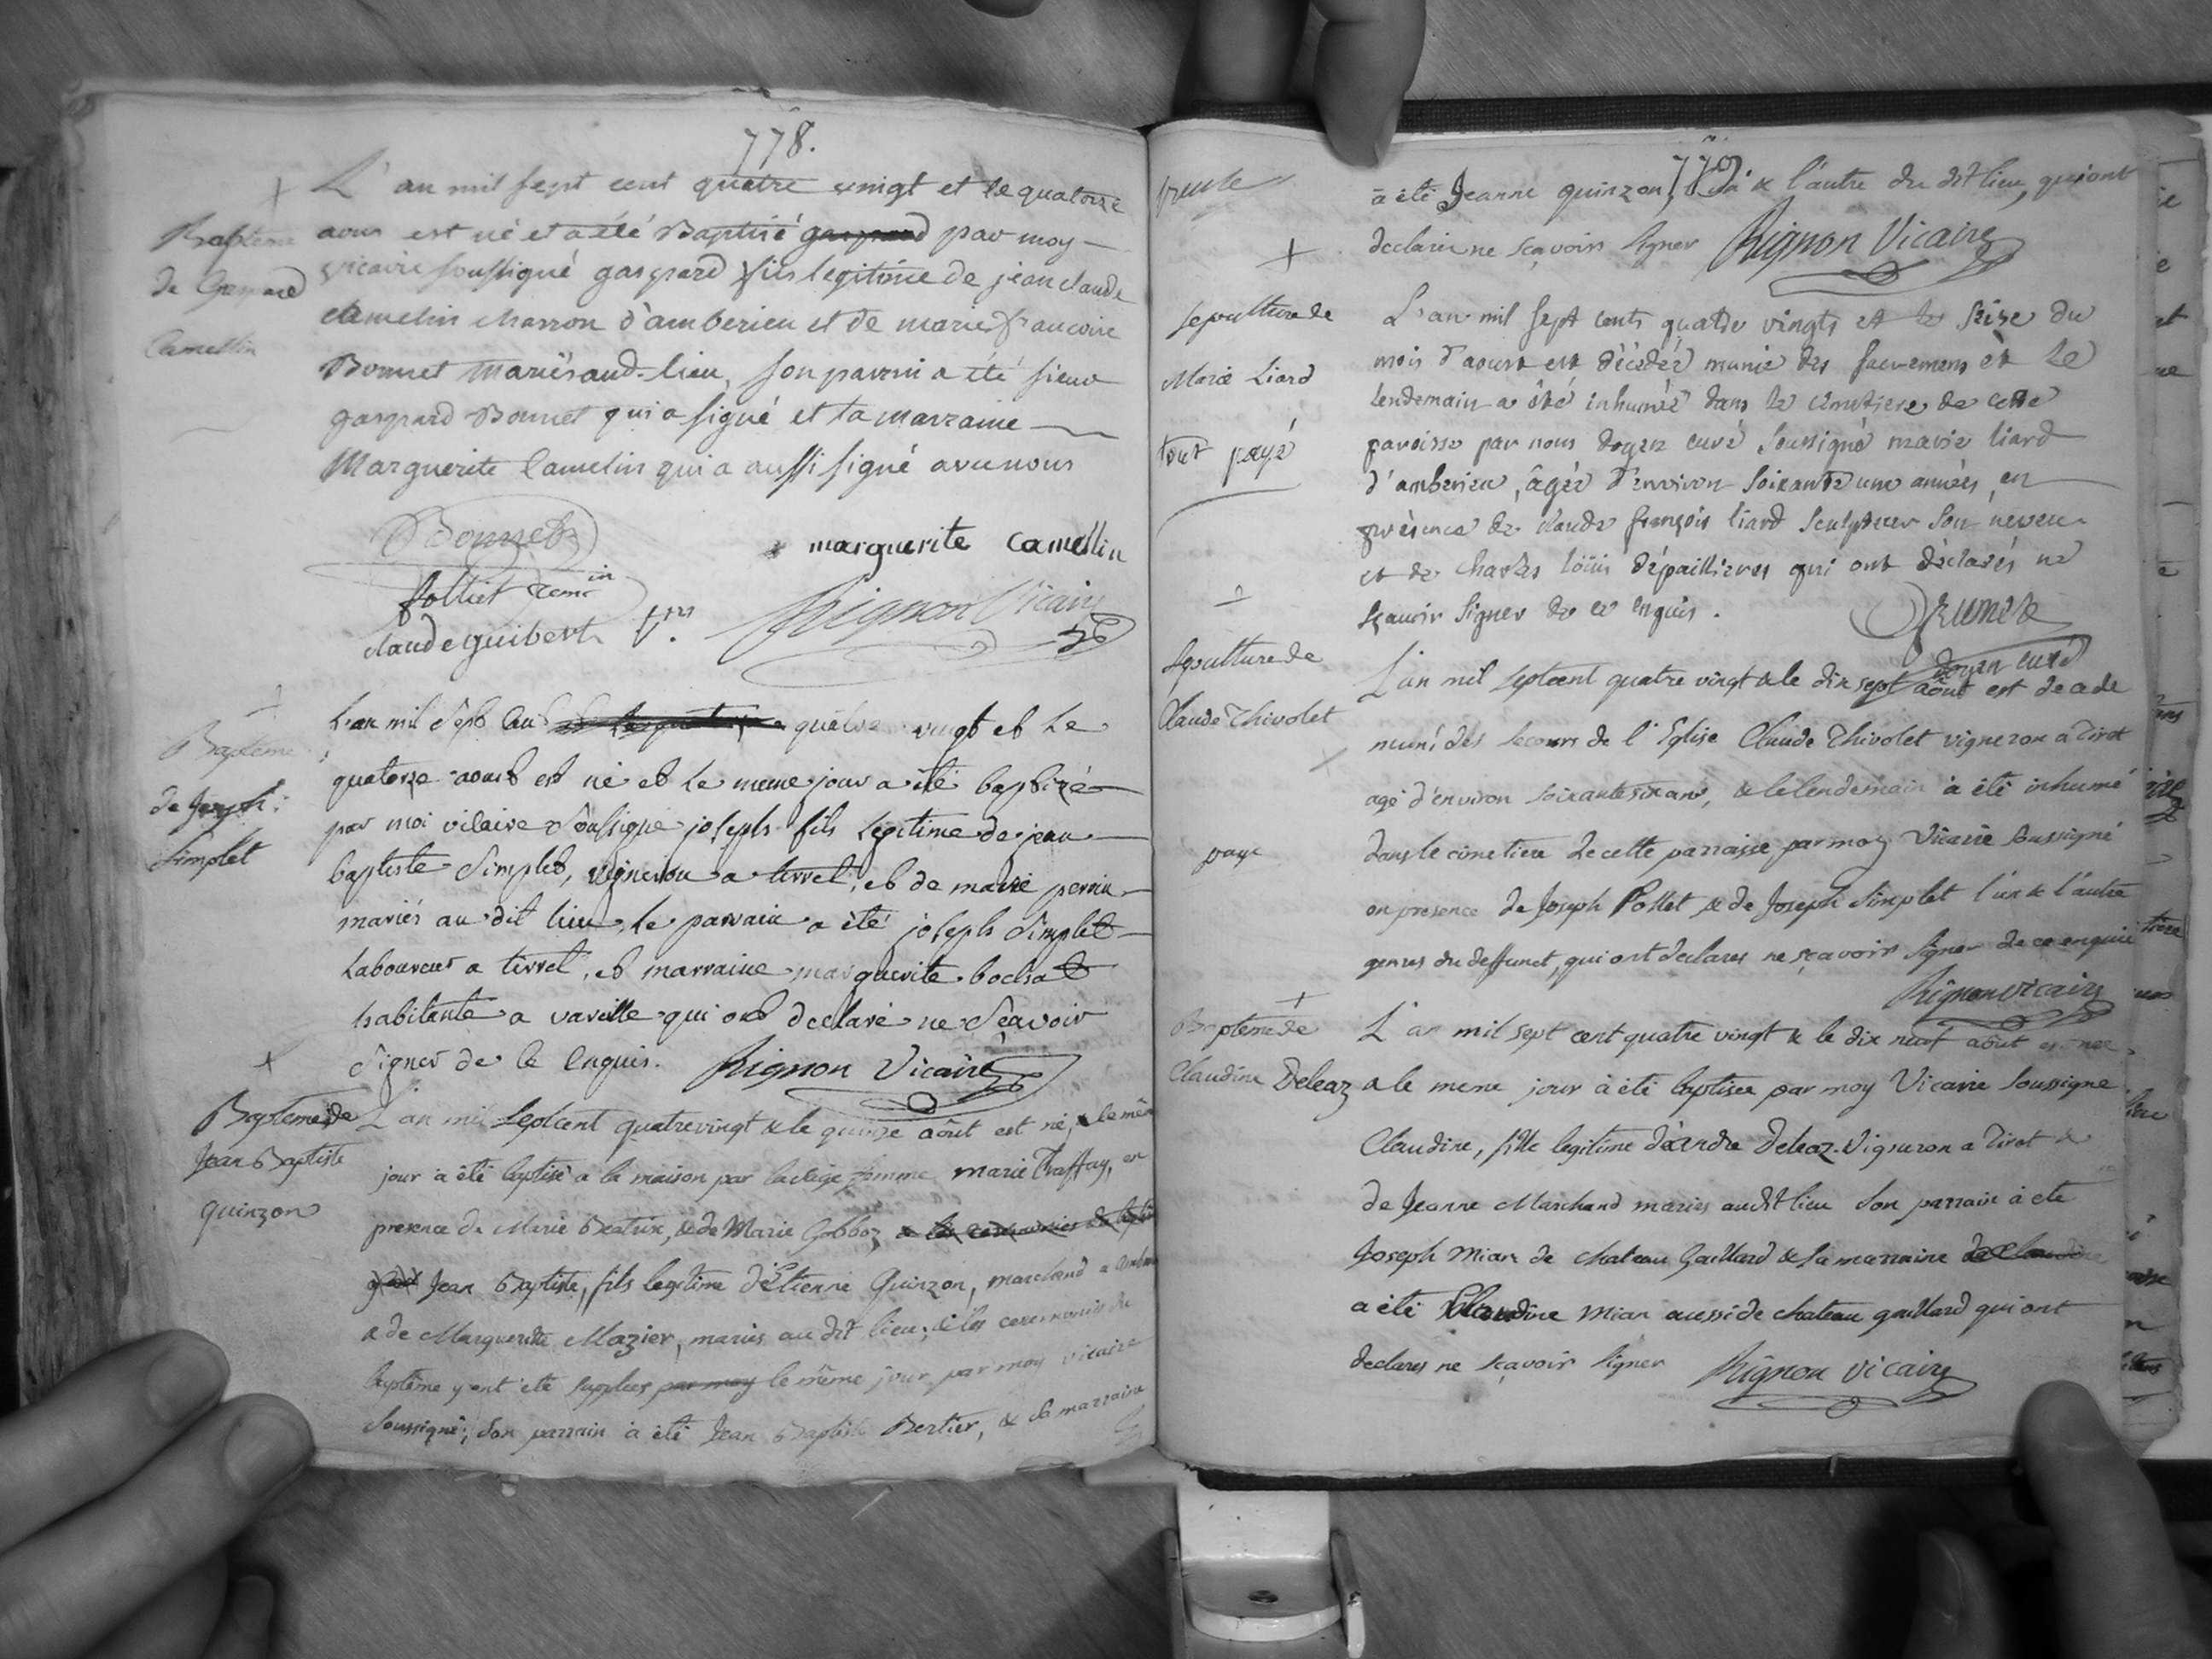 778.
L'an mil sept cent quatre vingt et le quatorze
Baptême
aous est né et a été Baptisé gaspard par moy
de Gaspard
vicaire soussigné gaspard fils legitime de jean claude
Camellin
camelin charron d'amberieu et de marie francoise
Bonnet mariés aud-lieu, son parrin a été sieur
gaspard Bonnet qui a signé et la marraine
Marguerite Camelin qui a aussi signé avec nous
Bonnet
marguerite camellin
folliet
claude guibert
Rignon Vicaire
L'an mil sept cent quatre vingt et le
Baptême
quatorze aoust est né et le meme jour a été baptizé
de Joseph
par moi vicaire soussigné joseph fils legitime de jean
Simplet
baptiste Simplet, vigneron a tirret, et de marie perrin
mariés au dit lieu, le parrain a été joseph Simplet
laboureur a tirret, et marraine marguerite bochat
habitante a vareille qui ont declaré ne sçavoir
signer de ce enquis. Rignon Vicaire
Baptême de
L'an mil sept cent quatre vingt & le quinze aôut est né, & le mêm
Jean Baptiste
jour à été baptisé a la maison par la sage femme marie Chaffay, en
quinzon
presence de Marie Beatrix, & de Marie Gobboz & les ceremonies du
Jean Baptiste, fils legitime d'Etienne Quinzon, marchand a
& de Marguerite Mazier, mariés au dit lieu; & les ceremonies du
baptême y ont été supplées par moy le même jour par moy vicaire
soussigné; son parrain à été Jean Baptiste Bertier, & sa marraine
779
à été Jeanne quinzon, & l'autre du dit lieu, qui ont
declaré ne sçavoir signer Rignon Vicaire
sepulture de
L'an mil sept cents quatre vingts et le seize du
Marie Liard
mois d'aoust est décédée munie des sacremens et le
tout payé
lendemain a été inhumée dans le cimetiere de cette
paroisse par nous doyen curé soussigné marie liard
d'amberieu, âgée d'environ soixante une années, en
présence de claude françois liard sculpteur son neveu
et de Charles loüis dépaillieres qui ont déclarés ne
sçavoir signer de ce enquis.
Brunet
doyen curé
sepulture de
L'an mil septcent quatre vingt & le dix sept aôut est decede
Claude Thivolet
muni des secours de l'Eglise Claude Thivolet vigneron a Tiret
agé d'environ soixante six ans, & le lendemain à été inhumé
payé
dans le cimetiere de cette parroisse par moy Vicaire soussigné
en presence de Joseph Pollet & de Joseph Simplet l'un & l'autre
genres du deffunct, qui ont declares ne sçavoir signer de ce enquis
Rignon vicaire
Baptême de
L'an mil sept cent quatre vingt & le dix neuf aôut est née
Claudine Deleaz
& le meme jour à été baptisee par moy Vicaire soussigné
Claudine, fille legitime d'andre Deleaz vigneron a Tiret &
de Jeanne Marchand mariés audit lieu son parrain à eté
Joseph Mian de chateau Gaillard & sa marraine de Claudine
a été Claudine Mian aussi de chateau gaillard qui ont
declares ne sçavoir signer Rignon vicaire